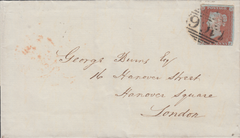 George Burns Esq
16 Hanover Street
Hanover Square
London